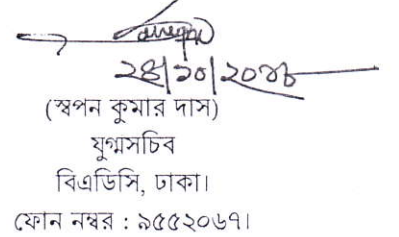 ২৪/১০/২০১৮
(স্বপন কুমার দাস)
যুগ্মসচিব
বিএডিসি, ঢাকা।
ফোন নম্বর : ৯৫৫২০৬৭।